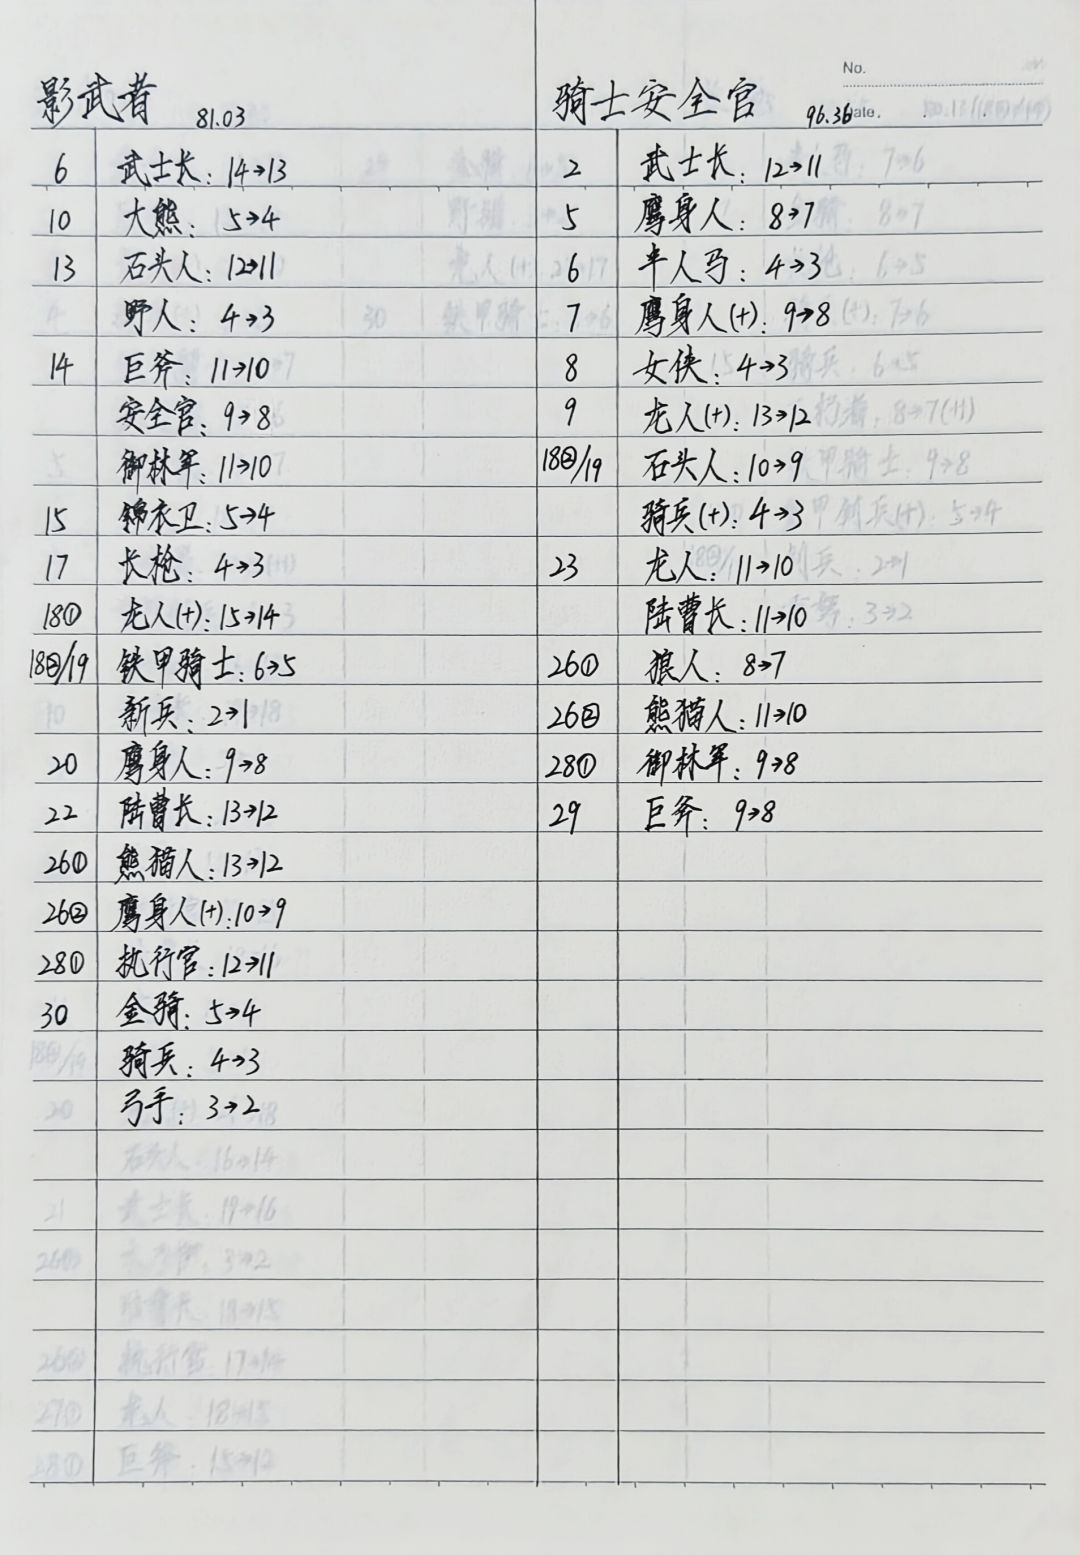 No.
影武者 81.03
6 武士长：14→13
10 大熊：5→4
13 石头人：12→11
野人：4→3
14 巨斧：11→10
安全官：9→8
御林军：11→10
15 锦衣卫：5→4
17 长枪：4→3
18① 龙人(+)：15→14
18②/19 铁甲骑士：6→5
新兵：2→1
20 鹰身人：9→8
22 陆曹长：13→12
26① 熊猫人：13→12
26② 鹰身人(+)：10→9
28① 执行官：12→11
30 金骑：5→4
骑兵：4→3
弓手：3→2
骑士安全官 96.36 Date.
2 武士长：12→11
5 鹰身人：8→7
6 半人马：4→3
7 鹰身人(+)：9→8
8 女侠：4→3
9 龙人(+)：13→12
18②/19 石头人：10→9
骑兵(+)：4→3
23 龙人：11→10
陆曹长：11→10
26① 狼人：8→7
26② 熊猫人：11→10
28① 御林军：9→8
29 巨斧：9→8